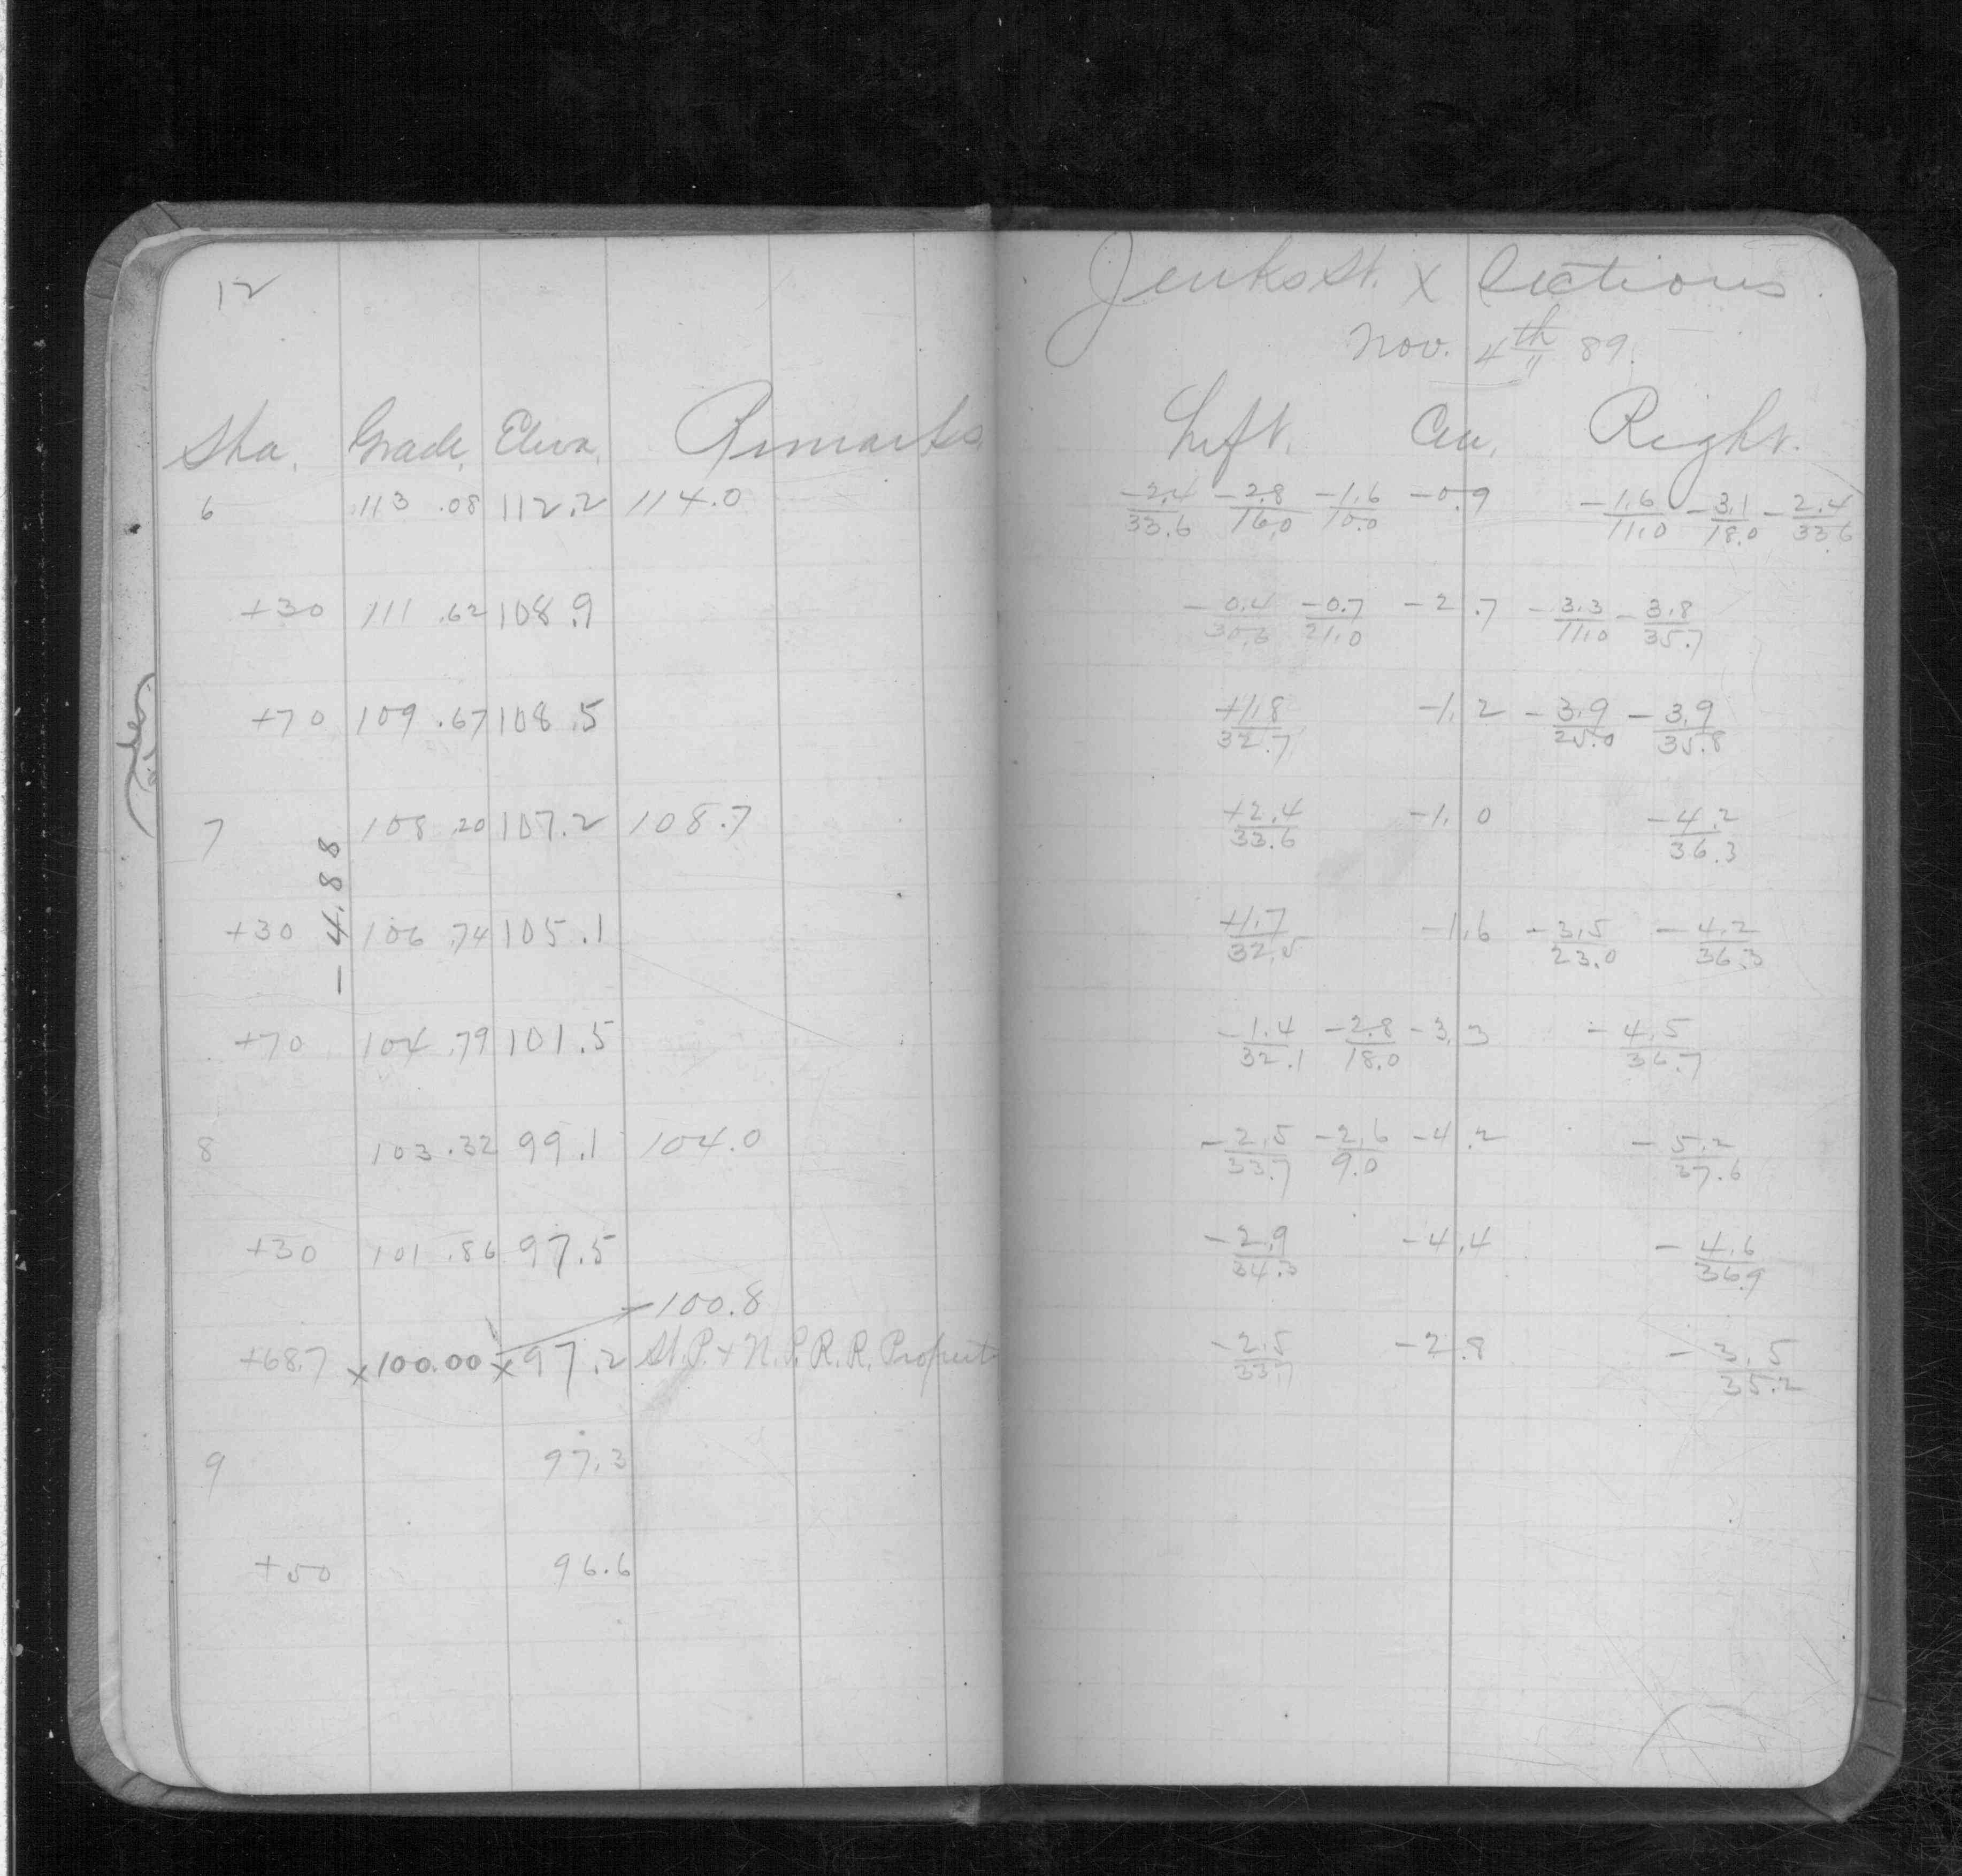 12
Jenks St. X Sections.
Nov. 4th 89.
Sta. Grade. Eleva. Remarks Left. Cen. Right.
6 113.08 112.2 114.0 -2.4/33.6 -2.8/16.0 -1.6/10.0 -0.9 -1.6/11.0 -3.1/18.0 -2.4/33.6
+30 111.62 108.9 -0.4/30.6 -0.7/21.0 -2.7 -3.3/11.0 -3.8/35.7
+70 109.67 108.5 +1.8/32.7 -1.2 -3.9/25.0 -3.9/35.8
7 108.20 107.2 108.7 +2.4/33.6 -1.0 -4.2/36.3
-4.88
+30 106.74 105.1 +1.7/32.5 -1.6 -3.5/23.0 -4.2/36.3
+70 104.79 101.5 -1.4/32.1 -2.8/18.0 -3.3 -4.5/36.7
8 103.32 99.1 104.0 -2.5/33.7 -2.6/9.0 -4.2 -5.2/37.6
+30 101.86 97.5 -2.9/34.3 -4.4 -4.6/36.9
100.8
+68.7 x100.00 x97.2 St. P. + N. P. R. R. Propert -2.5/33.7 -2.8 -3.5/35.2
9 97.3
+50 96.6